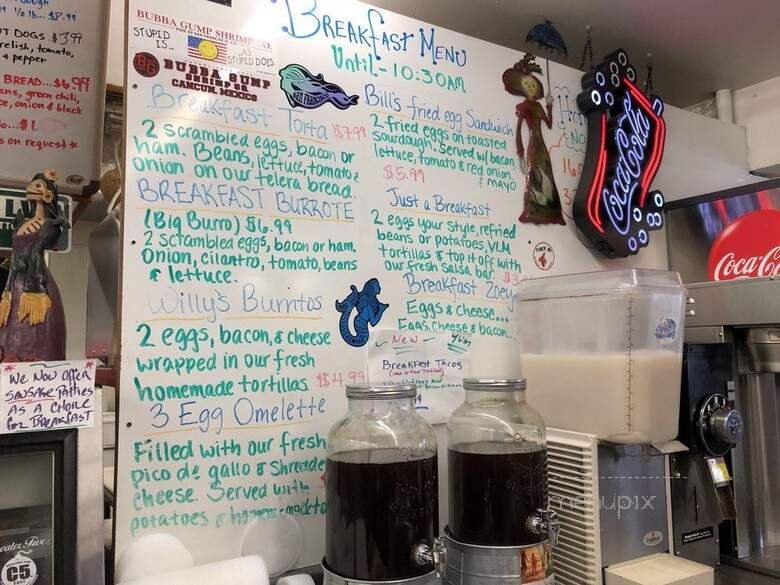 1/2 lb... $8.99
DOGS $3.99
relish, tomato,
& pepper
BREAD...$6.99
ans, green chili,
ce, onion & black
on request
BUBBA GUMP SHRIMP CO.
STUPID
IS...
AS
STUPID DOES
BUBBA GUMP
SHRIMP CO.
CANCUN, MEXICO
BREAKFAST MENU
Until - 10:30AM
Breakfast Torta $7.99
2 scrambled eggs, bacon or
ham. Beans, lettuce, tomato &
onion on our telera bread.
BREAKFAST BURROTE
(Big Burro) $6.99
2 scrambled eggs, bacon or ham.
Onion, cilantro, tomato, beans
& lettuce.
Willy's Burritos
2 eggs, bacon, & cheese
wrapped in our fresh
homemade tortillas $4.99
3 Egg Omelette
Filled with our fresh
pico de gallo & Shredde
cheese. Served with
potatoes & homemade to
Bill's fried egg Sandwich
2 fried eggs on toasted
sourdough. Served w/ bacon
lettuce, tomato & red onion
& mayo
$5.99
Just a Breakfast
2 eggs your style, refried
beans or potatoes, VLM
tortillas & top it off with
our fresh salsa bar.
Breakfast Zoey
Eggs & cheese...
Eggs, cheese & bacon...
New
Yum
BREAKFAST TACOS
We Now Offer
SAUSAKE Patties
As A Choice
For Breakfast
Coca-Cola
Coca-Co
C5
menupix